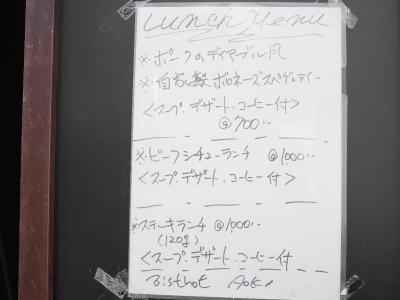 Lunch Menu
※ ポークのディヤーブル風
※ 自家製ボロネーズスパゲッティー
<スープ.デザート.コーヒー付>
@700.-
※ビーフシチューランチ @1,000.-
<スープ.デザート.コーヒー付>
※ステーキランチ @1,000.-
(120g)
<スープ.デザート.コーヒー付
Bistrot Aoki